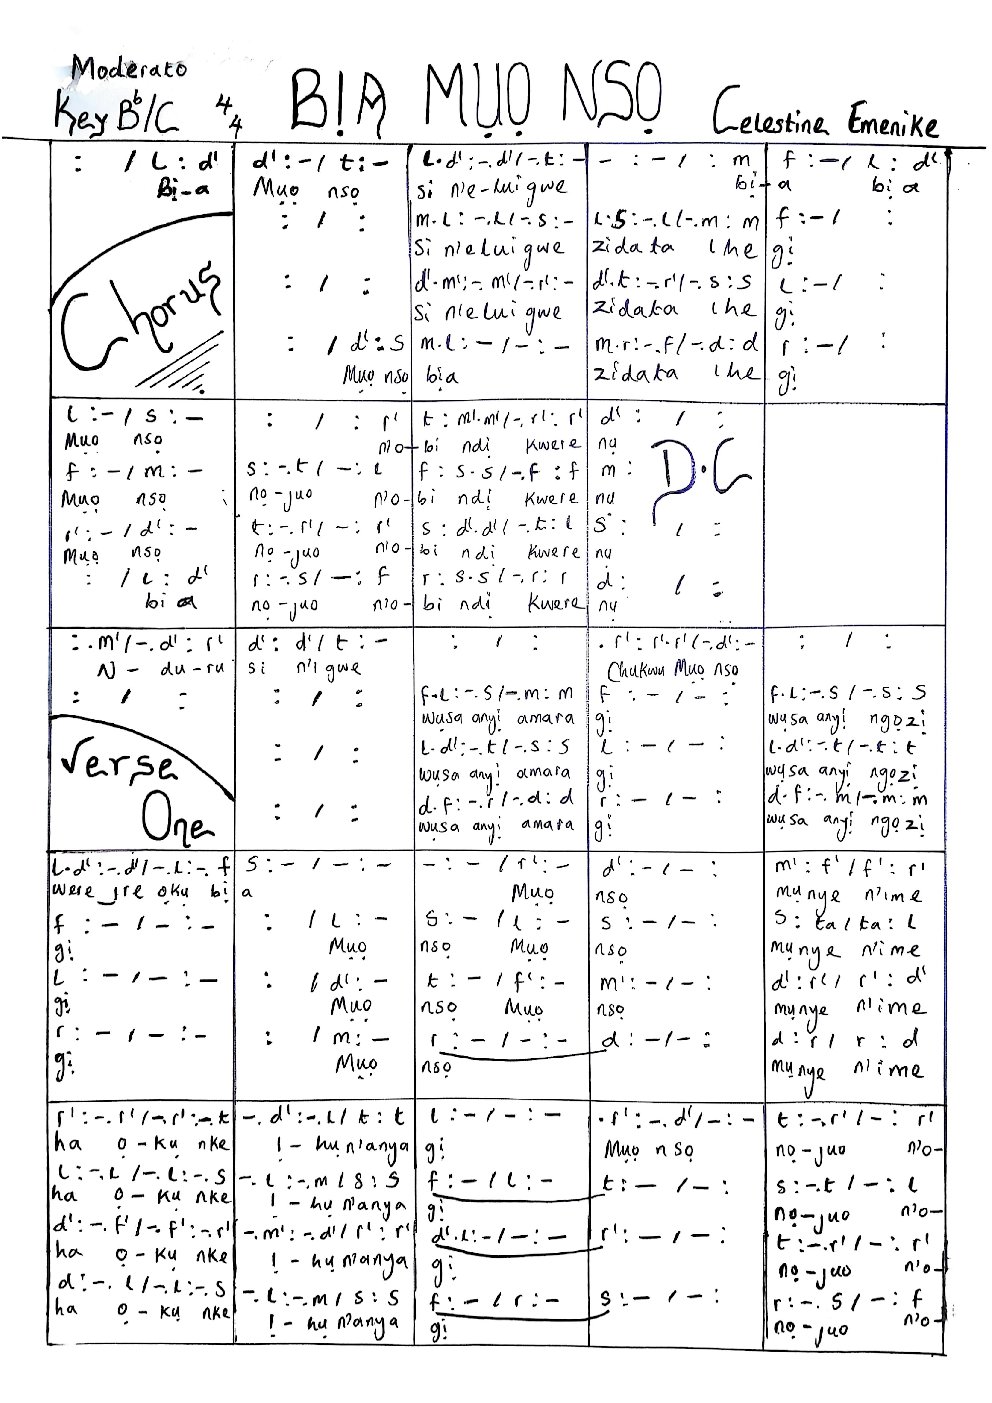 Moderato
Key Bb/C 4/4
BỊA MỤỌ NSỌ
Celestine Emenike
: / L : d'
Bị-a
Chorus
d' : - / t : -
Mụọ nsọ
: / :
: / :
: / d' : s
Mụọ nsọ
L.d' : -.d' / -.t : -
si n'e-luigwe
m.L : -.L / -.s : -
Si n'eluigwe
d'.m' : -.m' / -.r' : -
Si n'eluigwe
m.L : - / - : -
bịa
- : - / : m
bị-
L.S : -.L / -.m : m
zidata ihe
d'.t : -.r' / -.s : s
zidata ihe
m.r : -.f / -.d : d
zidata ihe
f : - / L : d'
a bị a
f : - / :
gị
L : - / :
gị
r : - / :
gị
L : - / s : -
Mụọ nsọ
f : - / m : -
Mụọ nsọ
r' : - / d' : -
Mụọ nsọ
: / L : d'
bị a
: / : r'
n'o-
s : -.t / - : L
nọ-juo n'o-
t : -.r' / - : r'
nọ-juo n'o-
r : -.s / - : f
nọ-juo n'o-
t : m'.m' / -.r' : r'
bi ndị kwere
f : s.s / -.f : f
bi ndị kwere
s : d'.d' / -.t : L
bi ndi kwere
r : s.s / -.r : r
bi ndị kwere
d' : / :
nụ
m :
nụ
D.C
s : / :
nụ
d : / :
nụ
: .m' / -.d' : r'
N - du-ru
: / :
Verse One
d' : d' / t : -
si n'igwe
: / :
: / :
: / :
: / :
f.L : -.s / -.m : m
wụsa anyị amara
L.d' : -.t / -.s : s
wụsa anyị amara
d.f : -.r / -.d : d
wụsa anyị amara
.r' : r'.r' / -.d' : -
Chukwu Mụọ nsọ
f : - / - :
gị
L : - / - :
gị
r : - / - :
gị
: / :
f.L : -.s / -.s : s
wụsa anyị ngọzị
L.d' : -.t / -.t : t
wụsa anyị ngọzị
d.f : -.m / -.m : m
wụsa anyị ngọzị
L.d' : -.d' / -.L : -.f
were ire ọkụ bị
f : - / - : -
gị
L : - / - : -
gị
r : - / - : -
gị
s : - / - : -
a
: / L : -
Mụọ
: / d' : -
Mụọ
: / m : -
Mụọ
- : - / r' : -
Mụọ
s : - / L : -
nsọ Mụọ
t : - / f' : -
nsọ Mụọ
r : - / - : -
nsọ
d' : - / - :
nsọ
s : - / - :
nsọ
m' : - / - :
nsọ
d : - / - :
m' : f' / f' : r'
mụnye n'ime
s : ta / ta : L
mụnye n'ime
d' : r' / r' : d'
mụnye n'ime
d : r / r : d
mụnye n'ime
r' : -.r' / -.r' : -.t
ha ọ-kụ nke
L : -.L / -.L : -.s
ha ọ-kụ nke
d' : -.f' / -.f' : -.r'
ha ọ-kụ nke
d : -.L / -.L : -.s
ha ọ-kụ nke
-.d' : -.L / t : t
ị-hụn'anya
-.L : -.m / s : s
ị-hụ n'anya
-.m' : -.d' / r' : r'
ị-hụ n'anya
-.L : -.m / s : s
ị-hụ n'anya
L : - / - : -
gị
f : - / L : -
gị
d'.L : - / - : -
gị
f : - / r : -
gị
.r' : -.d' / - : -
Mụọ nsọ
t : - / - :
r' : - / - :
s : - / - :
t : -.r' / - : r'
nọ-juo n'o-
s : -.t / - : L
nọ-juo n'o-
t : -.r' / - : r'
nọ-juo n'o-
r : -.s / - : f
nọ-juo n'o-